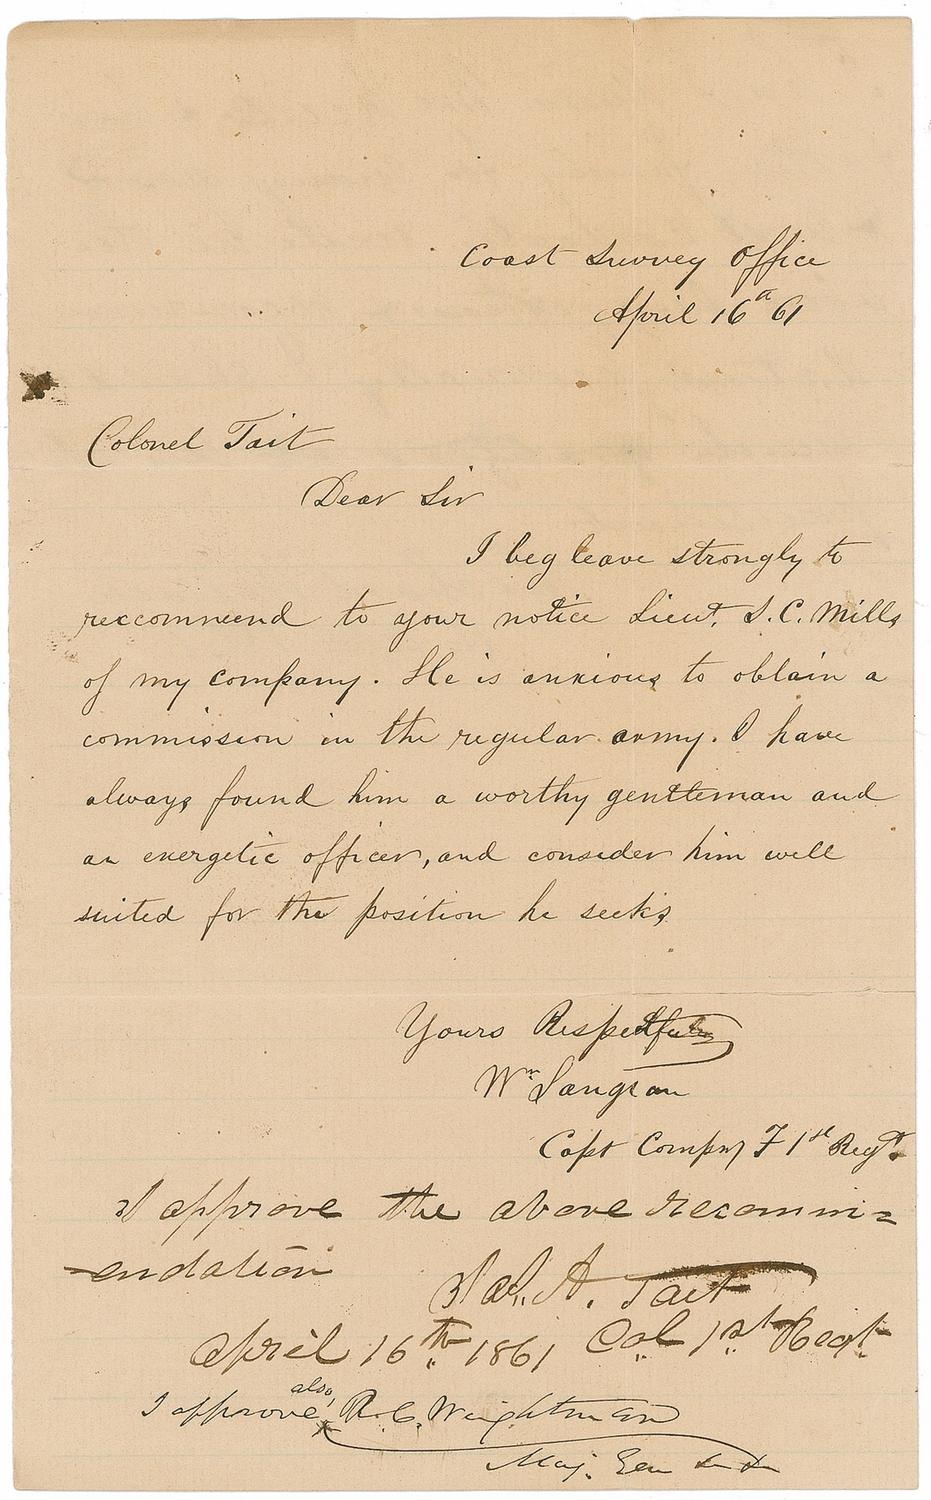 Coast Survey Office
April 16th 61
Colonel Tait
Dear Sir
I beg leave strongly to
reccommend to your notice Lieut. S. C. Mills
of my company. He is anxious to obtain a
commission in the regular army. I have
always found him a worthy gentleman and
an energetic officer, and consider him well
suited for the position he seeks
Yours Respectfully
Wm Langran
Capt Compny F 1st Regt.
I approve the above recomm=
endation
A. Tait
April 16th 1861 Col 1st Regt
also,
I approve, R. C. Weightman
Maj. Gen